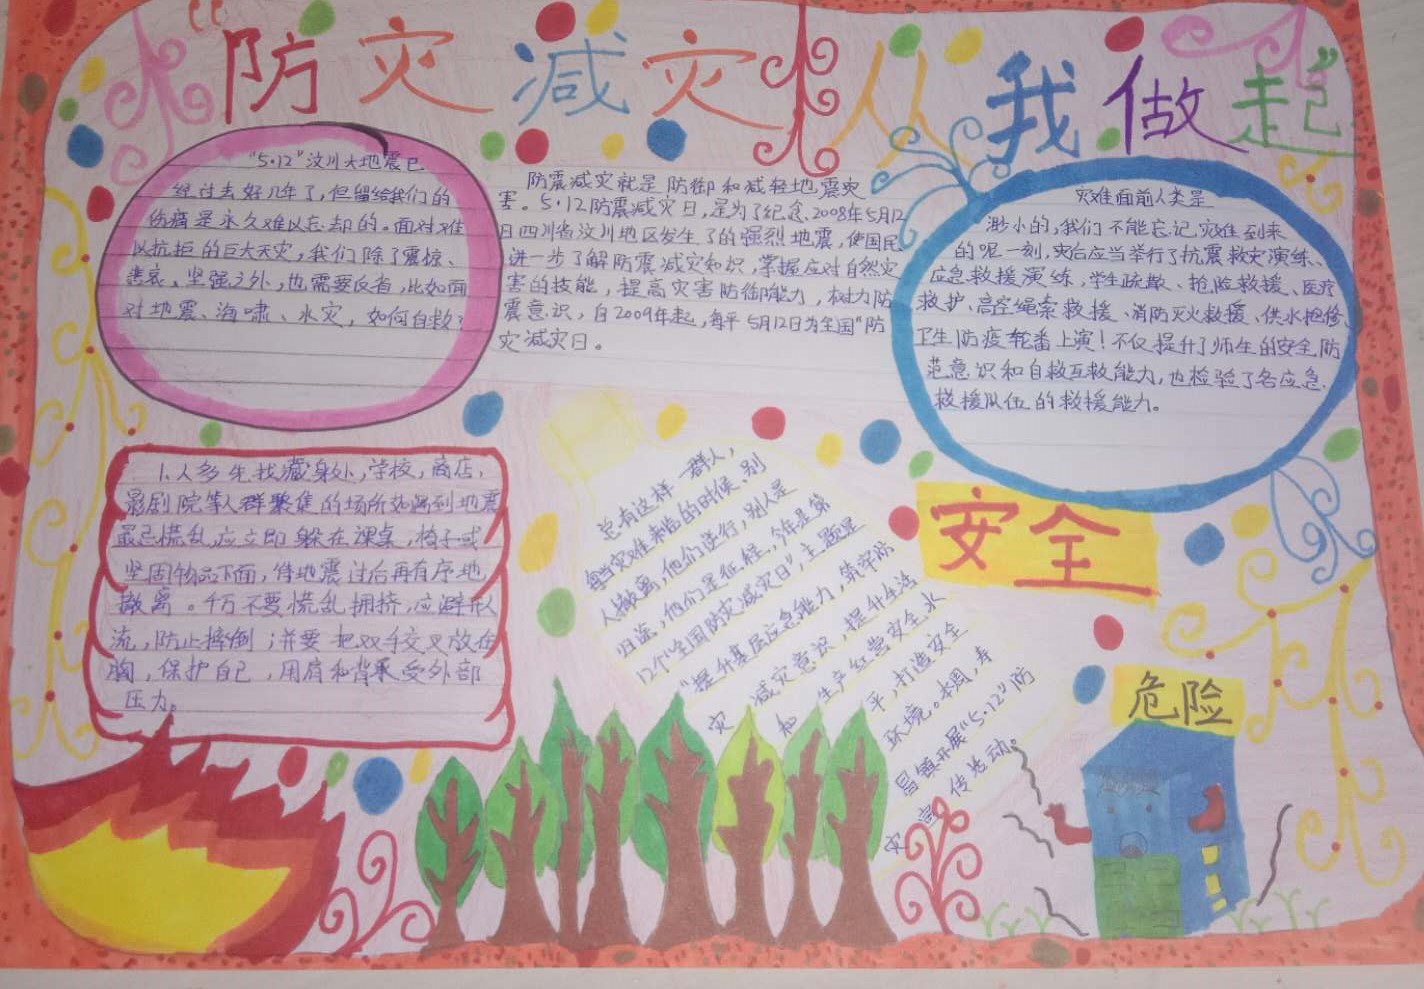 “防灾减灾从我做起”
“5·12”汶川大地震已
经过去好几年了，但留给我们的
伤痛是永久难以忘却的。面对难
以抗拒的巨大天灾，我们除了震惊、
悲哀、坚强之外，也需要反省，比如面
对地震、海啸、水灾，如何自救？
防震减灾就是防御和减轻地震灾
害。5·12防震减灾日，是为了纪念2008年5月12
日四川省汶川地区发生了的强烈地震，使国民
进一步了解防震减灾知识，掌握应对自然灾
害的技能，提高灾害防御能力，树力防
震意识，自2009年起，每年5月12日为全国“防
灾减灾日。
灾难面前人类是
渺小的，我们不能忘记，灾难到来
的呢一刻，灾后应当举行了抗震救灾演练、
应急救援演练，学生疏散、抢险救援、医疗
救护、高空绳索救援、消防灭火救援、供水抢修
卫生防疫轮番上演！不仅提升了师生的安全防
范意识和自救互救能力，也检验了各应急
救援队伍的救援能力。
1.人多先找藏身处，学校，商店，
影剧院等人群聚集的场所如遇到地震
最忌慌乱，应立即躲在课桌，椅子或
坚固物品下面，待地震过后再有序地
撤离。千万不要慌乱拥挤，应避开人
流，防止摔倒；并要把双手交叉放在
胸，保护自己，用肩和背承受外部
压力。
总有这样一群人，
每当灾难来临的时候、别
人撤离，他们逆行，别人是
归途，他们是征程。今年是第
12个“全国防灾减灾日”，主题是
“提升基层应急能力，筑牢防
灾减灾意识，提升生活
和生产红营安全水
平，打造安全
环境。本周，寿
昌镇开展“5·12”防
灾宣传活动。
安全
危险